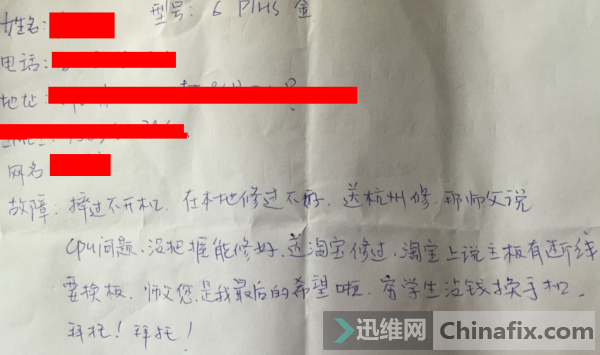 姓名:
型号: 6 Plus 金
电话:
地址:
网名
故障: 摔过不开机. 在本地修过不好. 送杭州修. 那师父说
CPU问题. 没把握能修好. 送淘宝修过. 淘宝上说主板有断线
要换板. 师父您是我最后的希望啦. 穷学生没钱换手机.
拜托! 拜托!
迅维网 Chinafix.com